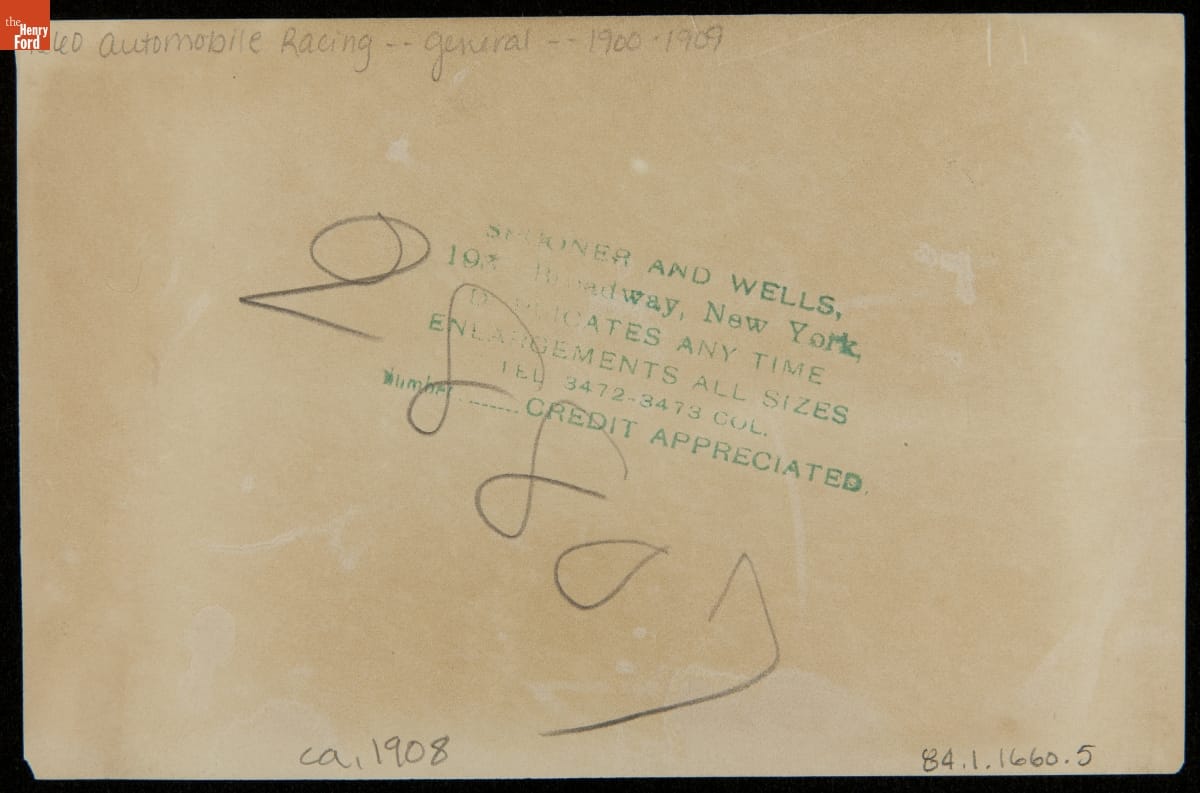 the
Henry
Ford
1660 Automobile Racing -- general -- 1900-1909
SPOONER AND WELLS,
Broadway, New York,
DUPLICATES ANY TIME
ENLARGEMENTS ALL SIZES
TEL 3472-3473 COL.
Number ------ CREDIT APPRECIATED.
ca. 1908
84.1.1660.5